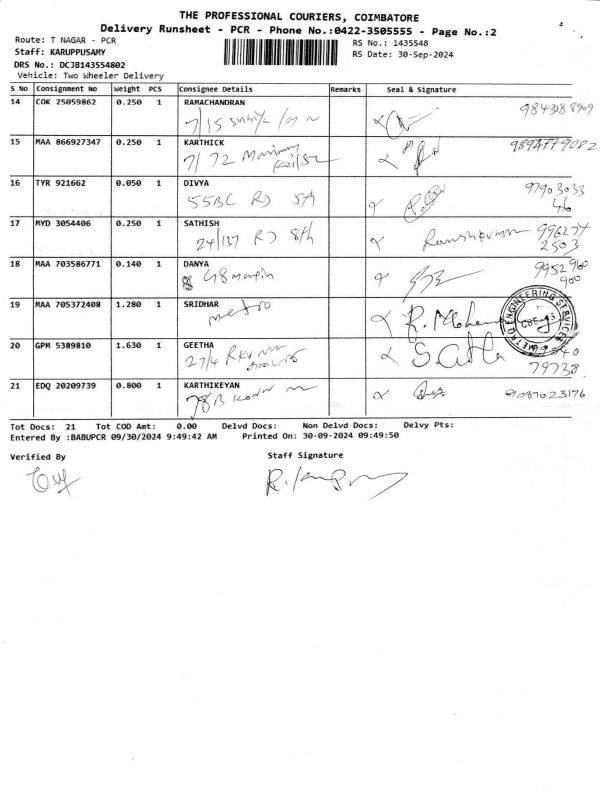 THE PROFESSIONAL COURIERS, COIMBATORE
Delivery Runsheet - PCR - Phone No.:0422-3505555 - Page No.:2
Route: T NAGAR - PCR
RS No.: 1435548
Staff: KARUPPUSAMY
RS Date: 30-Sep-2024
DRS No.: DCJB143554802
Vehicle: Two Wheeler Delivery
S No Consignment No Weight PCS Consignee Details Remarks Seal & Signature
14 COK 25059862 0.250 1 RAMACHANDRAN
7/15
15 MAA 866927347 0.250 1 KARTHICK
7/72
16 TYR 921662 0.050 1 DIVYA
97903033
55BC RJ 5th
46
17 MYD 3054406 0.250 1 SATHISH
996274
24/137 RJ 8th
2503
18 MAA 703586771 0.140 1 DANYA
9952960
900
19 MAA 705372408 1.280 1 SRIDHAR
metro
METRO ENGINEERING SERVICES
20 GPM 5389810 1.630 1 GEETHA
27/4
79738
21 EDQ 20209739 0.800 1 KARTHIKEYAN
78B
9087023176
Tot Docs: 21 Tot COD Amt: 0.00 Delvd Docs: Non Delvd Docs: Delvy Pts:
Entered By :BABUPCR 09/30/2024 9:49:42 AM Printed On: 30-09-2024 09:49:50
Verified By
Staff Signature